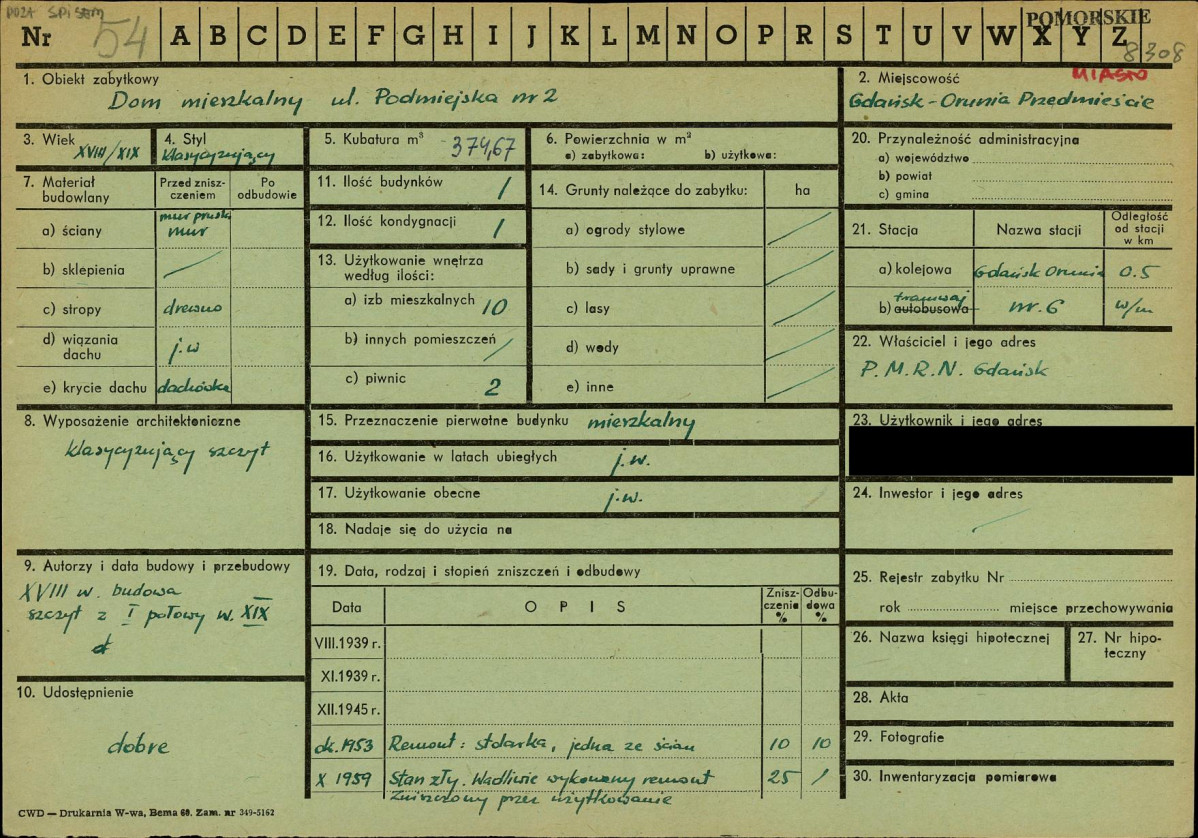 POZA SPISEM
Nr 54 A B C D E F G H I J K L M N O P R S T U V W X Y Z
POMORSKIE
8308
1. Obiekt zabytkowy
Dom mieszkalny ul. Podmiejska nr 2
2. Miejscowość
MIASTO
Gdańsk-Orunia Przedmieście
3. Wiek
XVIII/XIX
4. Styl
klasycyzujący
5. Kubatura m³ 374,67
6. Powierzchnia w m²
a) zabytkowa: b) użytkowa:
7. Materiał budowlany
Przed zniszczeniem
Po odbudowie
a) ściany
mur pruski
mur
b) sklepienia
c) stropy drewno
d) wiązania dachu j.w
e) krycie dachu dachówka
8. Wyposażenie architektoniczne
klasycyzujący szczyt
9. Autorzy i data budowy i przebudowy
XVIII w. budowa
szczyt z I połowy w. XIX
10. Udostępnienie
dobre
11. Ilość budynków 1
12. Ilość kondygnacji 1
13. Użytkowanie wnętrza
według ilości:
a) izb mieszkalnych 10
b) innych pomieszczeń
c) piwnic 2
14. Grunty należące do zabytku: ha
a) ogrody stylowe
b) sady i grunty uprawne
c) lasy
d) wody
e) inne
15. Przeznaczenie pierwotne budynku mieszkalny
16. Użytkowanie w latach ubiegłych j.w.
17. Użytkowanie obecne j.w.
18. Nadaje się do użycia na
19. Data, rodzaj i stopień zniszczeń i odbudowy
Data OPIS Zniszczenia % Odbudowa %
VIII.1939 r.
XI.1939 r.
XII.1945 r.
ok. 1953 Remont: stolarka, jedna ze ścian 10 10
X 1959 Stan zły. Wadliwie wykonany remont 25 /
Zniszczony przez użytkowanie
20. Przynależność administracyjna
a) województwo
b) powiat
c) gmina
21. Stacja Nazwa stacji Odległość od stacji w km
a) kolejowa Gdańsk Orunia 0.5
tramwaj
b) autobusowa nr. 6 w/m
22. Właściciel i jego adres
P.M.R.N. Gdańsk
23. Użytkownik i jego adres
24. Inwestor i jego adres
25. Rejestr zabytku Nr
rok miejsce przechowywania
26. Nazwa księgi hipotecznej
27. Nr hipoteczny
28. Akta
29. Fotografie
30. Inwentaryzacja pomiarowa
CWD — Drukarnia W-wa, Bema 60. Zam. nr 349-5162